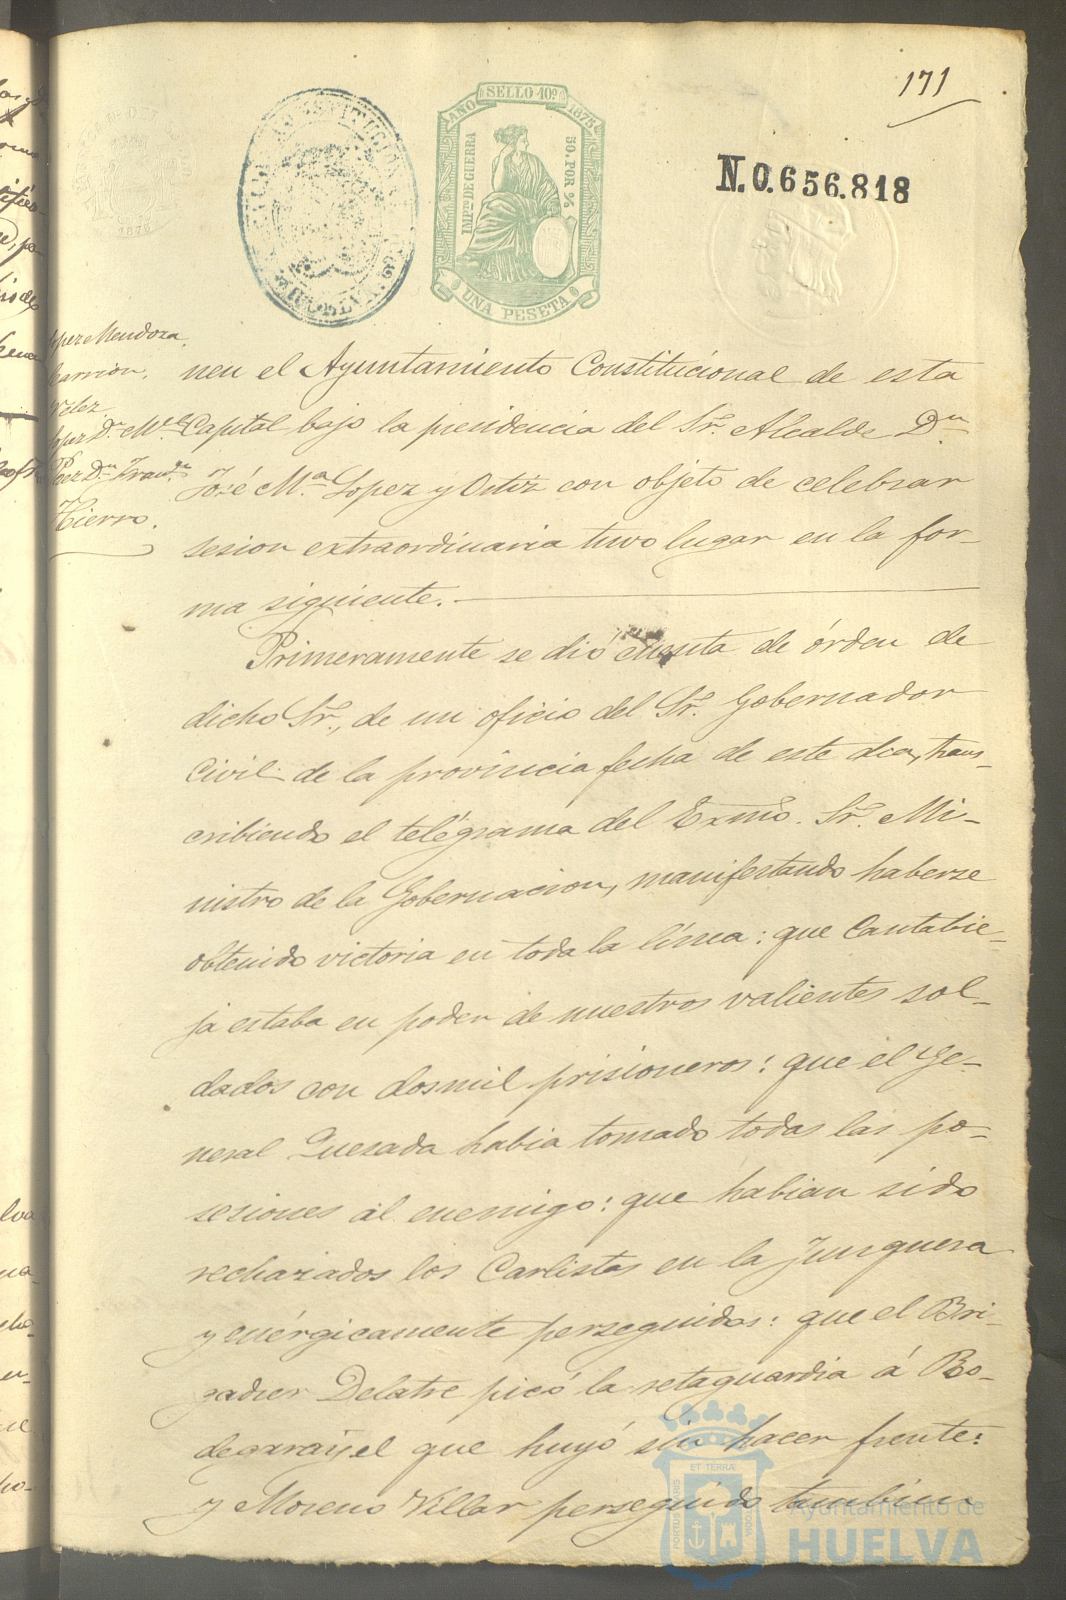 171
AÑO SELLO 10º 1875
IMPTO DE GUERRA
50. POR %
UNA PESETA
N.0.656.818
Lopez Mendoza.
Carrion.
Velez
Lopez Dn. Ml.
Paez Dn. Frando.
Tierro.
nen el Ayuntamiento Constitucional de esta
Capital bajo la presidencia del Sr. Alcalde Dn.
José Ma. Lopez y Ortiz con objeto de celebrar
sesion extraordinaria tuvo lugar en la for-
ma siguiente.
Primeramente se dió cuenta de órden de
dicho Sr., de un oficio del Sr. Gobernador
Civil de la provincia fecha de este dia, trans-
cribiendo el telégrama del Exmo. Sr. Mi-
nistro de la Gobernacion, manifestando haberse
obtenido victoria en toda la línea: que Cantabie-
ja estaba en poder de nuestros valientes sol-
dados con dosmil prisioneros: que el Ge-
neral Quesada habia tomado todas las po-
sesiones al enemigo: que habian sido
rechazados los Carlistas en la Junquera
y enérgicamente perseguidos: que el Bri-
gadier Delatre picó la retaguardia á Bo-
degarayel que huyó sin hacer frente:
y Moreno Villar perseguido tambien
ET TERRÆ
PORTUS MARIS
CUSTODIA
Ayuntamiento de
HUELVA